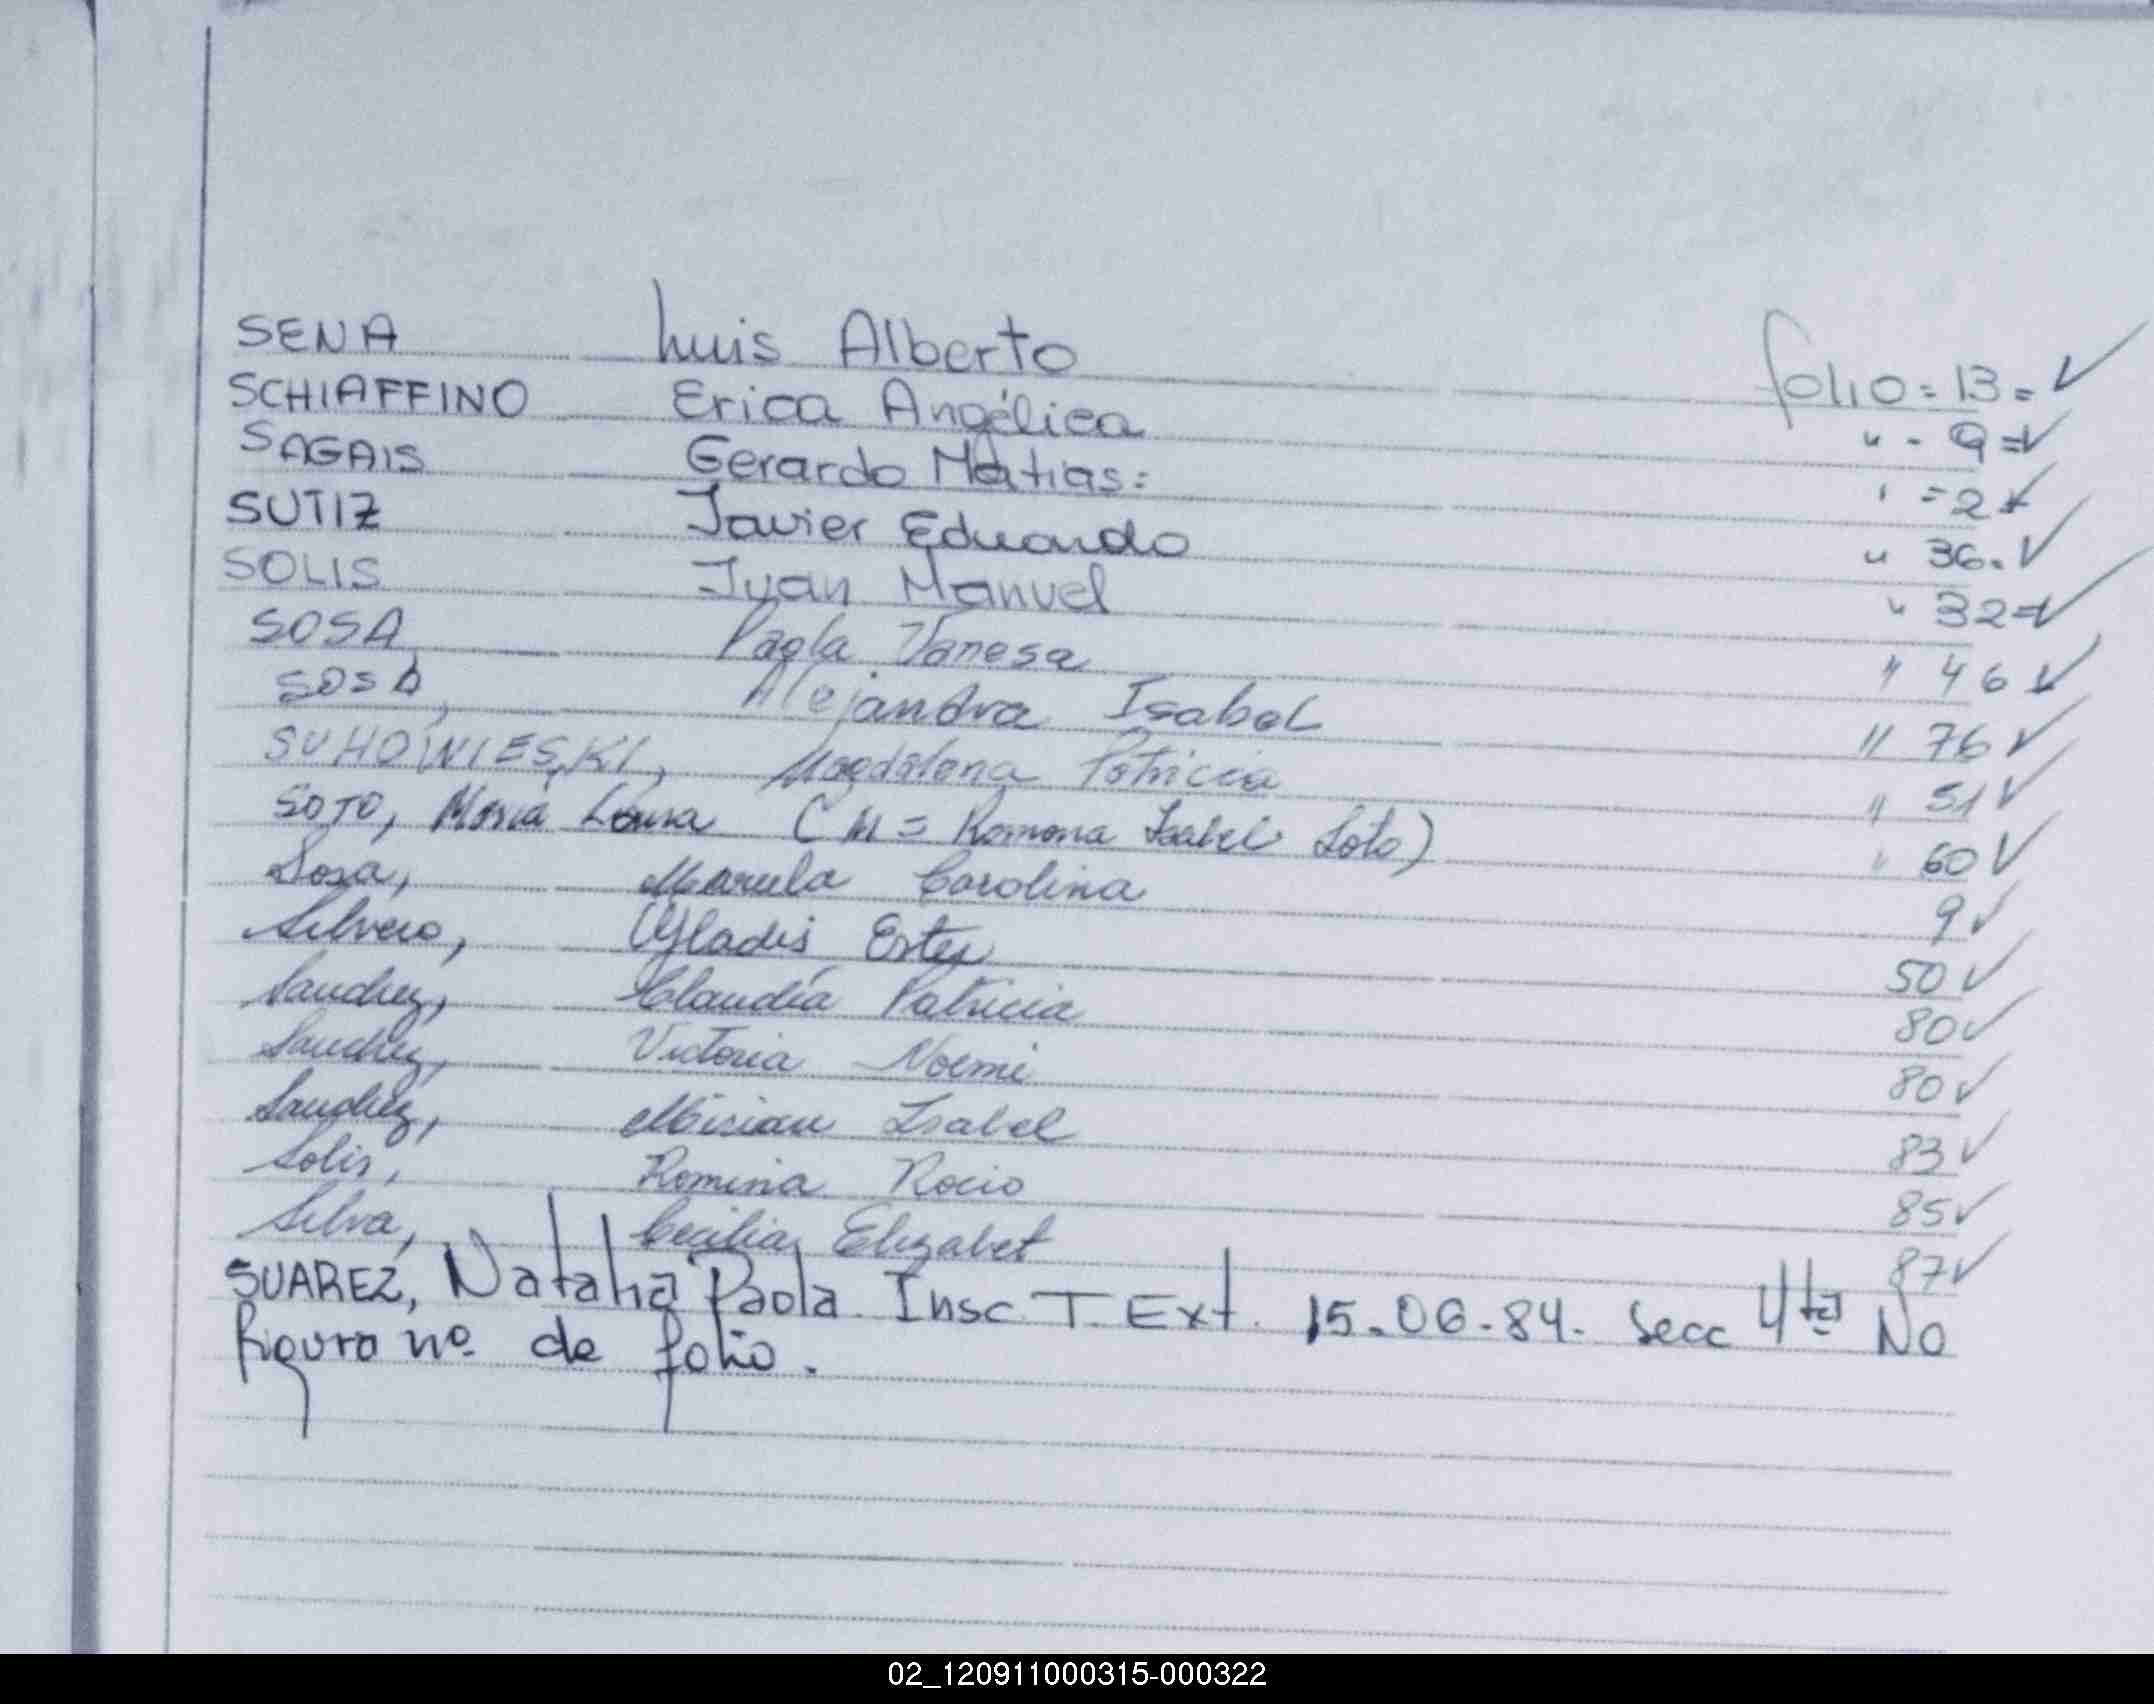 SENA Luis Alberto folio = 13 = ✓
SCHIAFFINO Erica Angélica " - 9 = ✓
SAGAIS Gerardo Matias: ' = 2 ✓
SUTIZ Javier Eduardo " 36. ✓
SOLIS Juan Manuel " 32 = ✓
SOSA Paola Vanesa " 46 ✓
SOSA, Alejandra Isabel " 76 ✓
SUHOWIESKI, Magdalena Patricia " 51 ✓
SOTO, Maria Louisa (M = Romona Isabel Soto) " 60 ✓
Sosa, Marcela Carolina 9 ✓
Silvero, Gladis Ester 50 ✓
Sanchez, Claudia Patricia 80 ✓
Sanchez, Victoria Noemi 80 ✓
Sanchez, Mirian Isabel 83 ✓
Solis, Romina Rocio 85 ✓
Silva, Cecilia Elizabet 87 ✓
SUAREZ, Natalia Paola Insc. T. Ext. 15-06-84. Secc 4ta No
figura nº de folio.
02_120911000315-000322